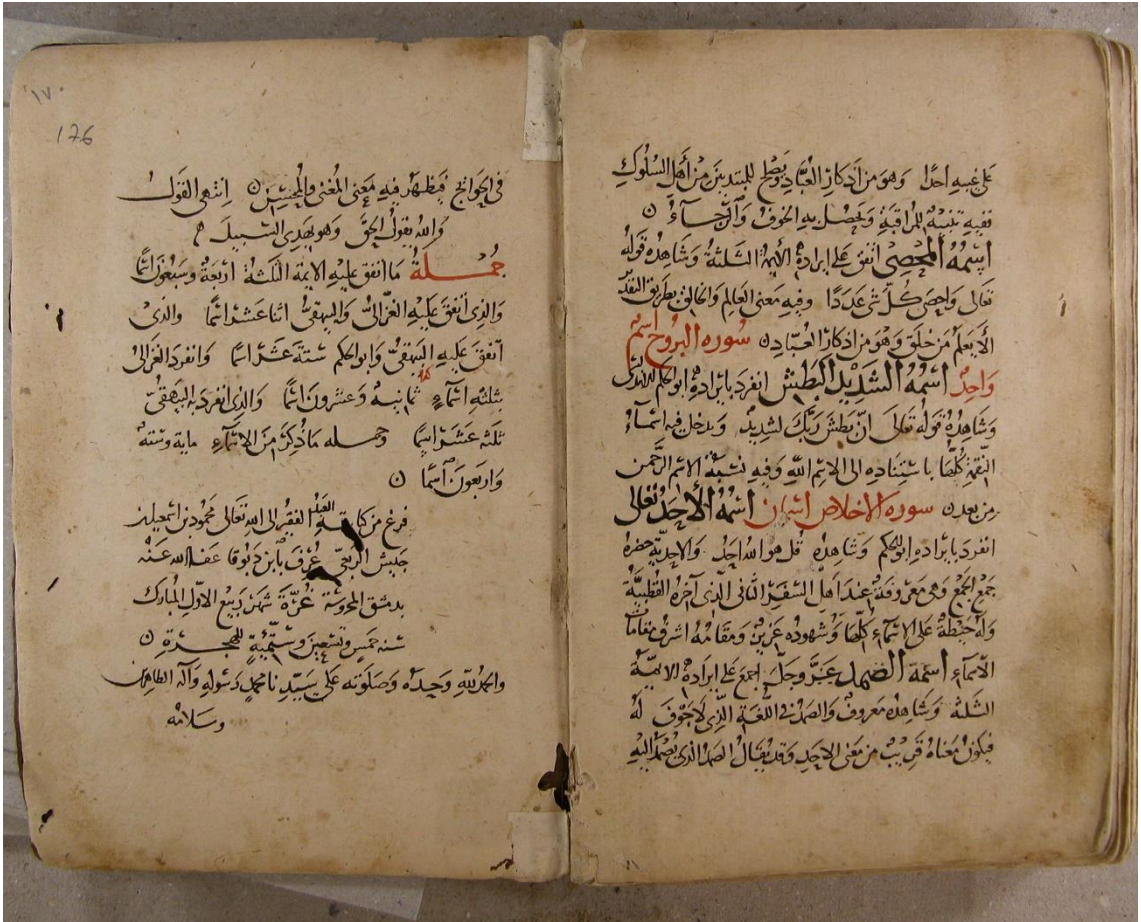 على غيبه احدًا وهو من اذكار العُبّاد ويصلح للمبتدين من أهل السلوك
ففيه تنبيه للمراقبة ويحصل به الخوف والرجاء
اسمه المحصي اتفق على ايراده الأيمة الثلثة وشاهده قوله
تعالى واحصى كل شي عددًا وفيه معنى العالم والخالق بطريق
ألا يعلم من خلق وهو من اذكار العبّاد سوره البروج اسم
واحد اسمه الشديد البطش انفرد بايراده ابو الحكم
وشاهده قوله تعالى ان بطش ربك لشديد ويدخل فيه اسماء
النقمة كلها باستناده الى الاسم الله وفيه نسبة الاسم الرحمن
من بعد سورة الاخلاص اسمان اسمه الأحد تعالى
انفرد بايراده ابو الحكم وشاهده قل هو الله احد والاحدية حضرة
جمع الجمع وهي معروفة عند اهل السفر الثاني الذي آخره القطبيّة
وله حيطة على الاسماء كلها وشهوده عزيز ومقامه اشرف مقامات
الاسماء اسمه الصمد عز وجل اجمع على ايراده الايمة
الثلثه وشاهده معروف والصمد في اللغة الذي لا جوف له
فيكون معناه قريب من معنى الاحد وقد يقال الصمد الذي يُصمد اليه
١٧٠
176
في الحوائج فيظهر فيه معنى المغني والمحسن انتهى القول
والله يقول الحق وهو يهدي السبيل
جملة ما اتفق عليه الايمة الثلثة اربعة وسبعون اسمًا
والذي اتفق عليه الغزالي والبيهقي اثنا عشر اسمًا والذي
اتفق عليه البيهقي وابو الحكم ستة عشر اسما وانفرد الغزالي
بثلثه اسماء ثمانية وعشرون اسمًا والذي انفرد به البيهقي
ثلثه عشر اسمًا وجمله ما ذكر من الاسماء مايه وسته
واربعون اسمًا
فرغ من كتابته العبد الفقير الى الله تعالى محمود بن اسمعيل بن
الربعي عُرف بابن دبوقا عفا الله عنه
بدمشق المحروسة غُرّة شهر ربيع الاول المبارك
سنه خمس وتسعين وستمئة للهجرة
والحمد لله وحده وصلوته على سيدنا محمد رسوله وآله الطاهرين
وسلامه